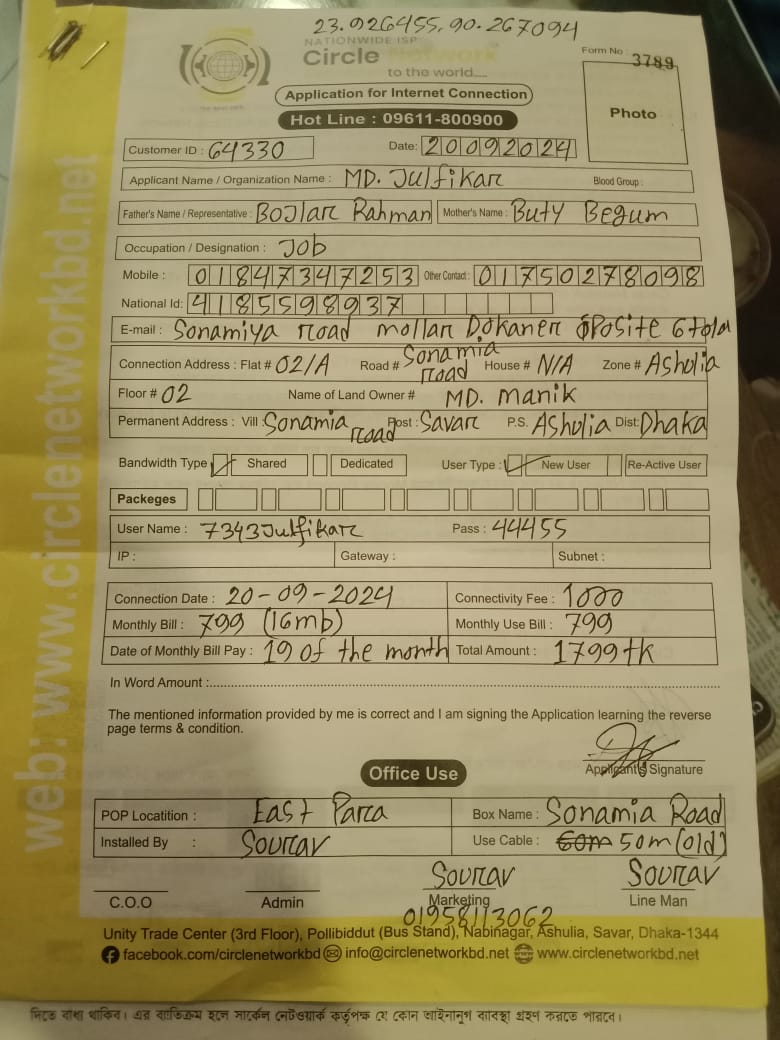 23.926455, 90.267094
NATIONWIDE ISP
Circle Network
to the world.....
Form No : 3789
Application for Internet Connection
Photo
Hot Line : 09611-800900
Customer ID : 64330 Date: 20092024
Applicant Name / Organization Name : MD. Julfikar Blood Group :
Father's Name / Representative : Bojlar Rahman Mother's Name : Buty Begum
Occupation / Designation : Job
Mobile : 01847347253 Other Contact : 01750278098
National Id: 4185598937
E-mail : Sonamiya road mollar Dokaner oposite 6 tola
Connection Address : Flat # 02/A Road # Sonamia road House # N/A Zone # Ashulia
Floor # 02 Name of Land Owner # MD. Manik
Permanent Address : Vill : Sonamia road Post : Savar P.S. Ashulia Dist: Dhaka
Bandwidth Type Shared Dedicated User Type : New User Re-Active User
Packeges
User Name : 7343Julfikar Pass : 44455
IP : Gateway : Subnet :
Connection Date : 20-09-2024 Connectivity Fee : 1000
Monthly Bill : 799 (16mb) Monthly Use Bill : 799
Date of Monthly Bill Pay : 19 of the month Total Amount : 1799tk
In Word Amount :
The mentioned information provided by me is correct and I am signing the Application learning the reverse
page terms & condition.
Applicant's Signature
Office Use
POP Locatition : East Para Box Name : Sonamia Road
Installed By : Sourav Use Cable : 60m 50m (old)
Sourav Sourav
C.O.O Admin Marketing Line Man
01958113062
Unity Trade Center (3rd Floor), Pollibiddut (Bus Stand), Nabinagar, Ashulia, Savar, Dhaka-1344
facebook.com/circlenetworkbd info@circlenetworkbd.net www.circlenetworkbd.net
web: www.circlenetworkbd.net
দিতে বাধ্য থাকিব। এর ব্যতিক্রম হলে সার্কেল নেটওয়ার্ক কর্তৃপক্ষ যে কোন আইনানুগ ব্যবস্থা গ্রহণ করতে পারবে।